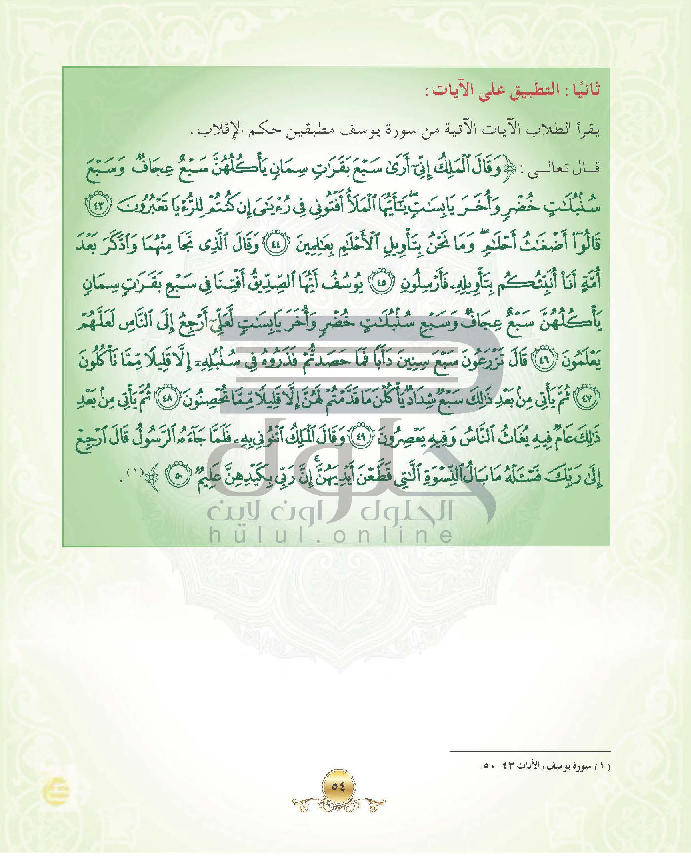 ثانيًا : التطبيق على الآيات :
يقرأ الطلاب الآيات الآتية من سورة يوسف مطبقين حكم الإقلاب .
قال تعالى : ﴿ وَقَالَ ٱلْمَلِكُ إِنِّىٓ أَرَىٰ سَبْعَ بَقَرَٰتٍ سِمَانٍ يَأْكُلُهُنَّ سَبْعٌ عِجَافٌ وَسَبْعَ
سُنۢبُلَٰتٍ خُضْرٍ وَأُخَرَ يَابِسَٰتٍ يَٰٓأَيُّهَا ٱلْمَلَأُ أَفْتُونِى فِى رُءْيَٰىَ إِن كُنتُمْ لِلرُّءْيَا تَعْبُرُونَ ٤٣
قَالُوٓا۟ أَضْغَٰثُ أَحْلَٰمٍ وَمَا نَحْنُ بِتَأْوِيلِ ٱلْأَحْلَٰمِ بِعَٰلِمِينَ ٤٤ وَقَالَ ٱلَّذِى نَجَا مِنْهُمَا وَٱدَّكَرَ بَعْدَ
أُمَّةٍ أَنَا۠ أُنَبِّئُكُم بِتَأْوِيلِهِۦ فَأَرْسِلُونِ ٤٥ يُوسُفُ أَيُّهَا ٱلصِّدِّيقُ أَفْتِنَا فِى سَبْعِ بَقَرَٰتٍ سِمَانٍ
يَأْكُلُهُنَّ سَبْعٌ عِجَافٌ وَسَبْعِ سُنۢبُلَٰتٍ خُضْرٍ وَأُخَرَ يَابِسَٰتٍ لَّعَلِّىٓ أَرْجِعُ إِلَى ٱلنَّاسِ لَعَلَّهُمْ
يَعْلَمُونَ ٤٦ قَالَ تَزْرَعُونَ سَبْعَ سِنِينَ دَأَبًا فَمَا حَصَدتُّمْ فَذَرُوهُ فِى سُنۢبُلِهِۦٓ إِلَّا قَلِيلًا مِّمَّا تَأْكُلُونَ
٤٧ ثُمَّ يَأْتِى مِنۢ بَعْدِ ذَٰلِكَ سَبْعٌ شِدَادٌ يَأْكُلْنَ مَا قَدَّمْتُمْ لَهُنَّ إِلَّا قَلِيلًا مِّمَّا تُحْصِنُونَ ٤٨ ثُمَّ يَأْتِى مِنۢ بَعْدِ
ذَٰلِكَ عَامٌ فِيهِ يُغَاثُ ٱلنَّاسُ وَفِيهِ يَعْصِرُونَ ٤٩ وَقَالَ ٱلْمَلِكُ ٱئْتُونِى بِهِۦ فَلَمَّا جَآءَهُ ٱلرَّسُولُ قَالَ ٱرْجِعْ
إِلَىٰ رَبِّكَ فَسْـَٔلْهُ مَا بَالُ ٱلنِّسْوَةِ ٱلَّٰتِى قَطَّعْنَ أَيْدِيَهُنَّ إِنَّ رَبِّى بِكَيْدِهِنَّ عَلِيمٌ ٥٠ ﴾ (١) .
حلول
الحلول اون لاين
hulul.online
(١) سورة يوسف ، الآيات ٤٣ - ٥٠
٥٤